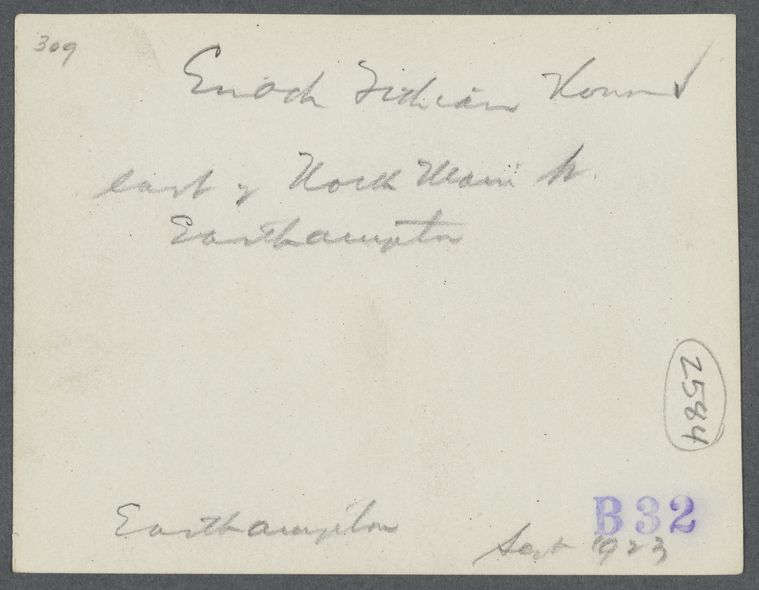 309
Enoch Fithian House
east of North Main St.
Easthampton
2584
Easthampton
B32
Sept 1923